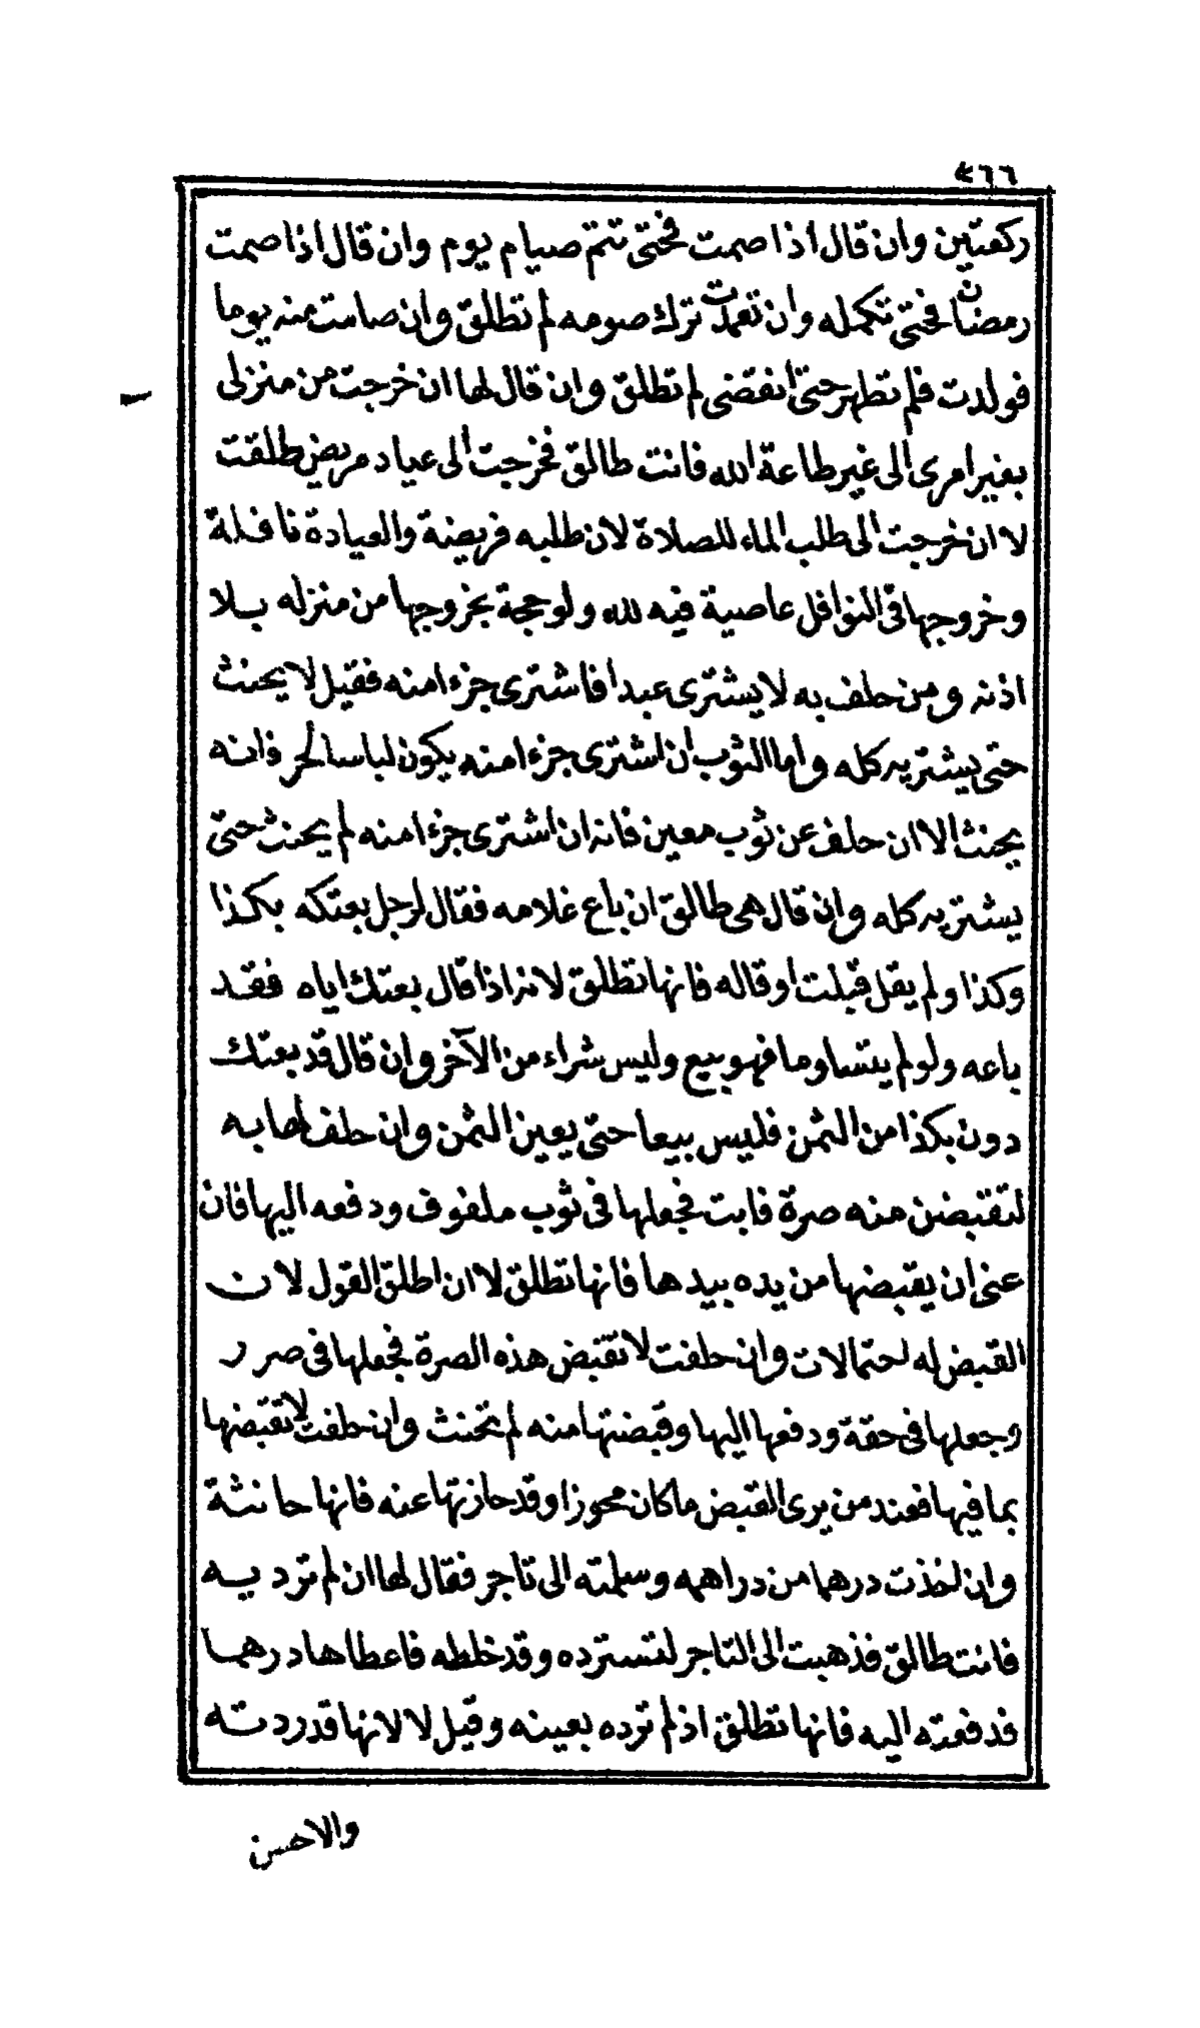 ٤٦٦
ركعتين وان قال اذا صمت فحتى تتم صيام يوم وان قال اذا صمت
رمضان فحتى تكمله وان تعمدت ترك صومه لم تطلق وان صامت منه يوما
فولدت فلم تطهر حتى انقضى لم تطلق وان قال لها ان خرجت من منزلى
بغير امرى الى غير طاعة الله فانت طالق فخرجت الى عياد مريض طلقت
لا ان خرجت الى طلب الماء للصلاة لان طلبه فريضة والعيادة نافلة
وخروجها فى النوافل عاصية فيه لله ولو حجة بخروجها من منزله بلا
اذنه ومن حلف به لا يشترى عبدا فاشترى جزءا منه فقيل لا يحنث
حتى يشتريه كله واما الثوب ان اشترى جزءا منه يكون لباسا لحر فانه
يحنث الا ان حلف عن ثوب معين فانه ان اشترى جزءا منه لم يحنث حتى
يشتريه كله وان قال هى طالق ان باع غلامه فقال لرجل بعتكه بكذا
وكذا ولم يقل قبلت او قاله فانها تطلق لانه اذا قال بعتك اياه فقد
باعه ولو لم يتساوما فهو بيع وليس شراء من الآخر وان قال قد بعتك
دون بكذا من الثمن فليس بيعا حتى يعين الثمن وان حلف لها به
لتقبضن منه صرة فابت فجعلها فى ثوب ملفوف ودفعه اليها فان
عنى ان يقبضها من يده بيدها فانها تطلق لا ان اطلق القول لان
القبض له احتمالات وان حلفت لا تقبض هذه الصرة فجعلها فى صرر
وجعلها فى حقة ودفعها اليها وقبضتها منه لم تحنث وان حلفت لا تقبضها
بما فيها فعند من يرى القبض ما كان محوزا وقد حازتها عنه فانها حانثة
وان اخذت درهما من دراهمه وسلمته الى تاجر فقال لها ان لم ترديه
فانت طالق فذهبت الى التاجر لتسترده وقد خلطه فاعطاها درهما
فدفعته اليه فانها تطلق اذ لم ترده بعينه وقيل لا لانها قد ردته
والاحسن